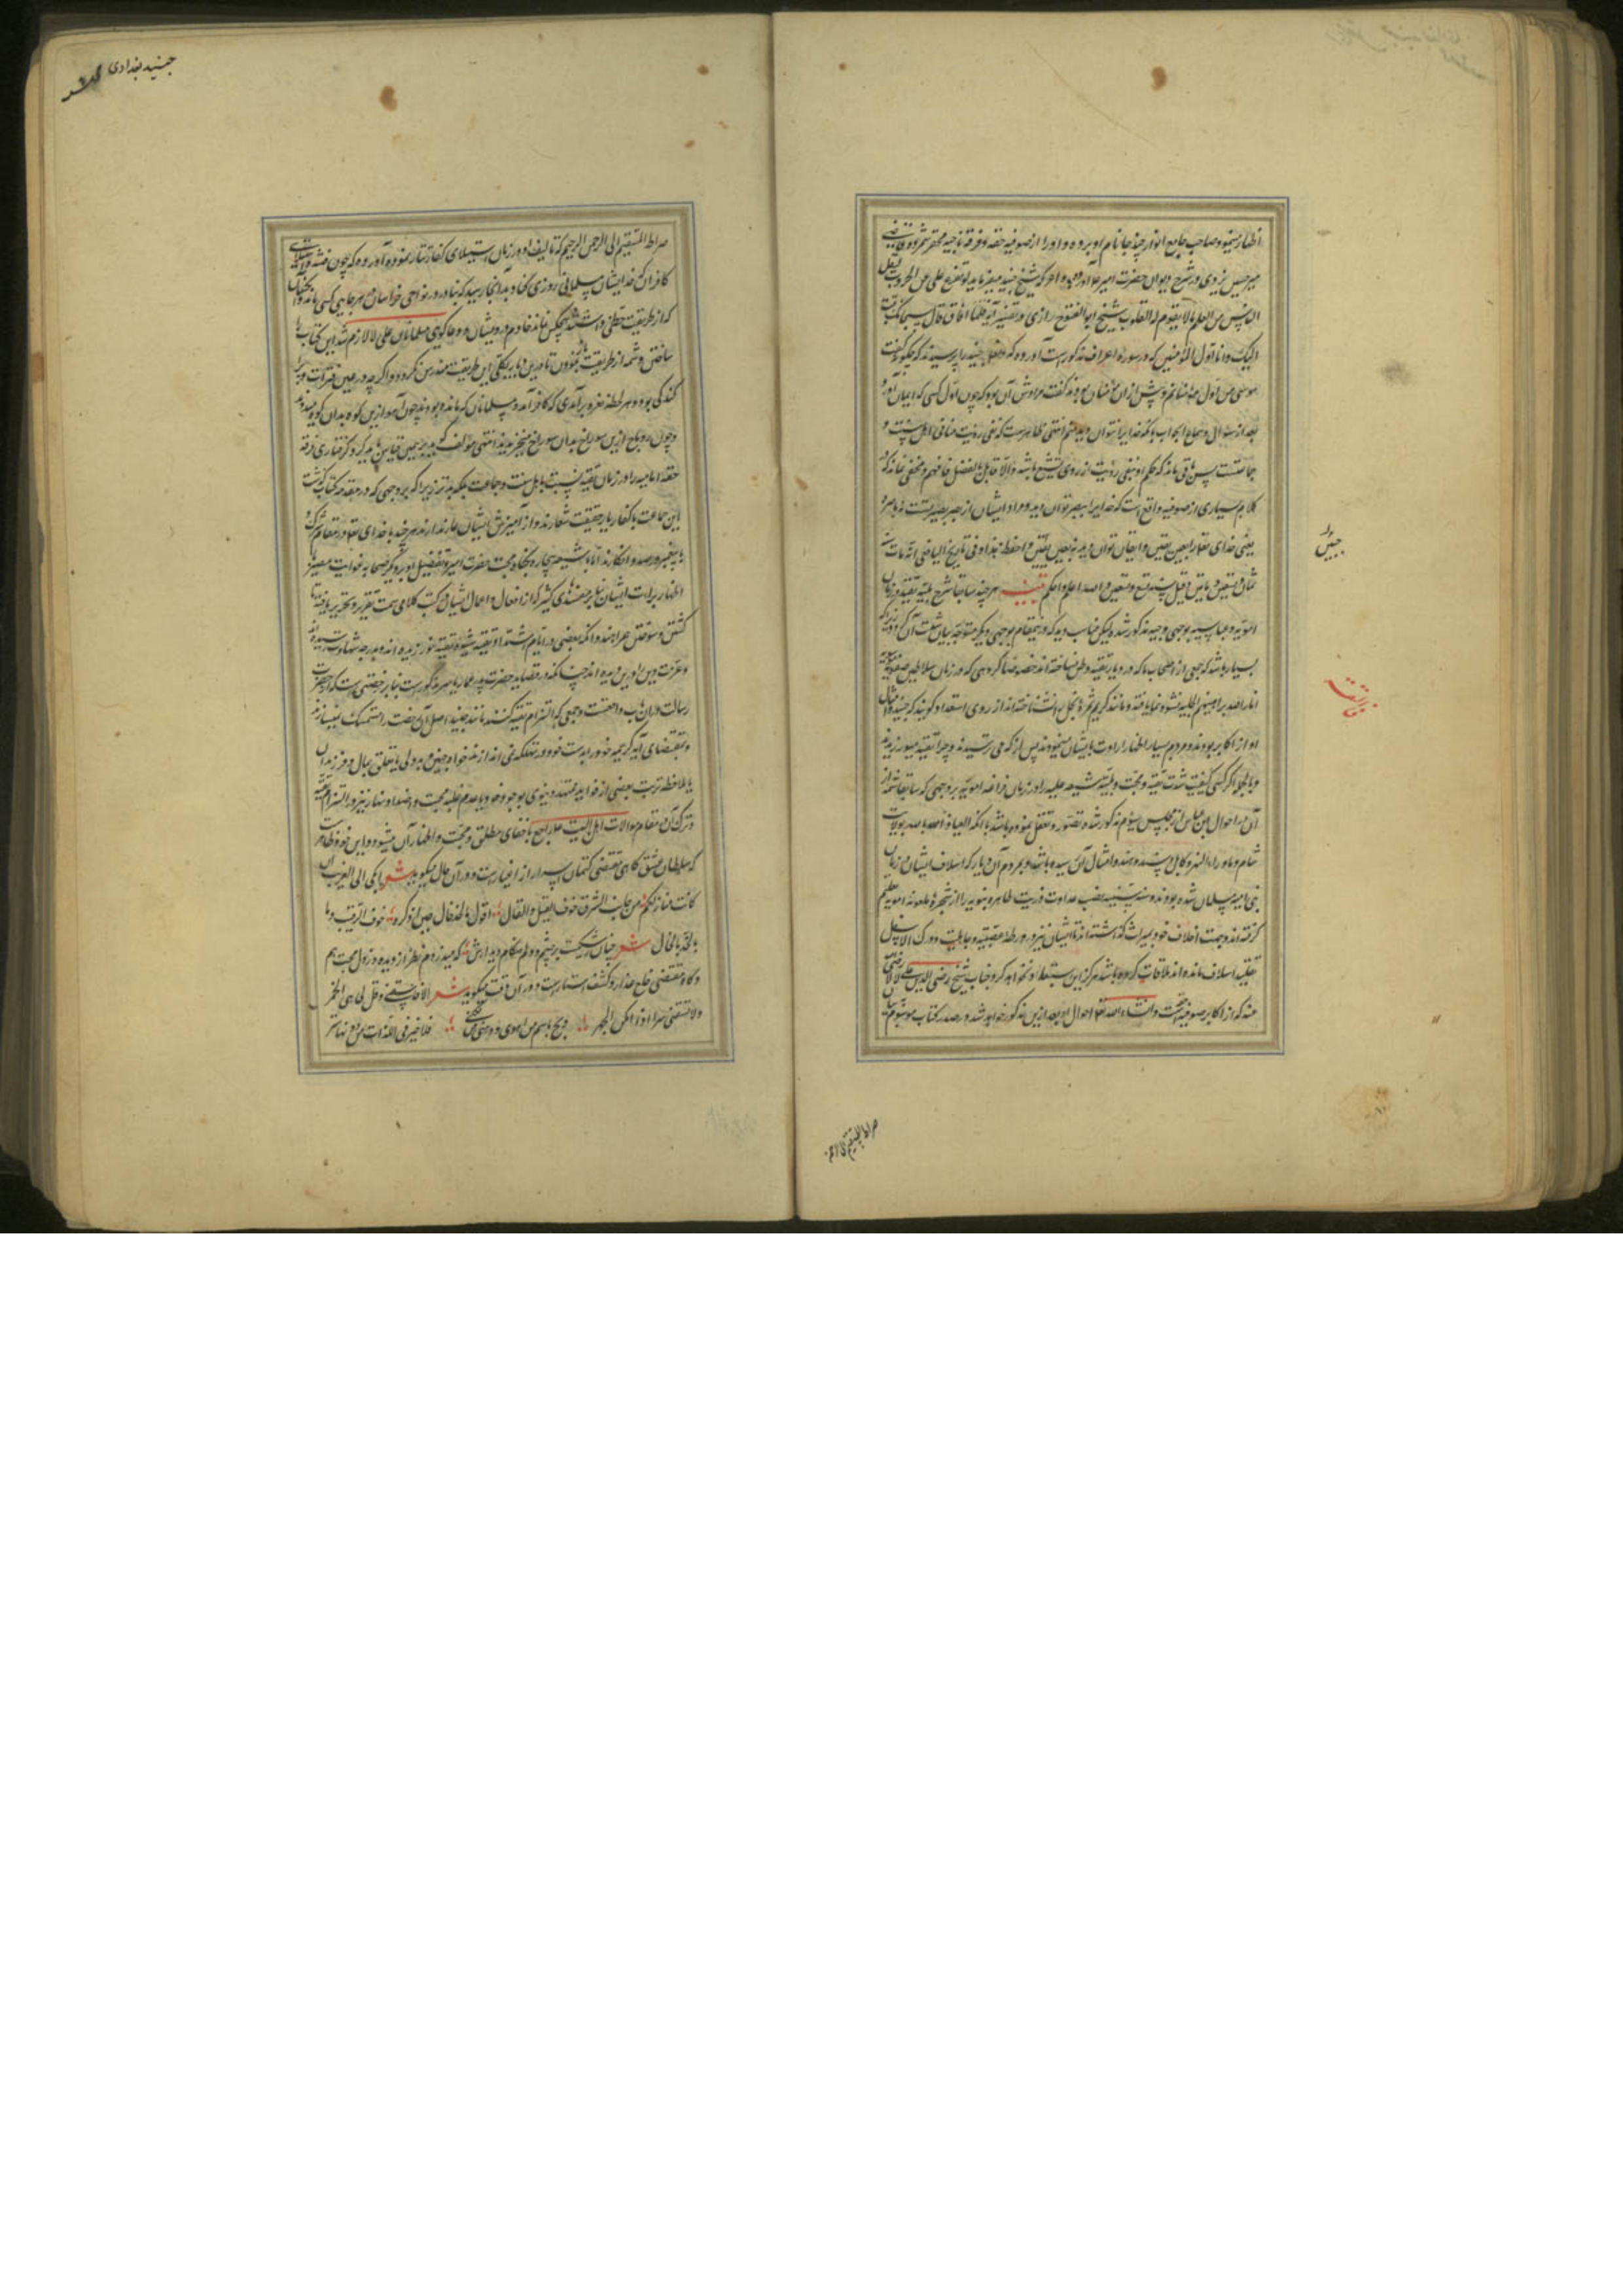 اظهار مینمود و صاحب جامع الانوار چند جا نام او برده و او را از صوفیه حقه و فرقه ناجیه
میر حسین یزدی در شرح دیوان حضرت امیر آورده که شیخ جنید میفرماید لو تفرغ علی من الحروب لنقل
الینا من العلم ما لا یقوم له القلوب شیخ ابو الفتوح رازی در تفسیر آیه فلما افاق قال سبحانک تبت
الیک و انا اول المؤمنین که در سوره اعراف مذکورست آورده که جنید را پرسیدند که چگونه گفت
موسی من اول مؤمنانم و پیش از آن مؤمنان بودند گفت مرادش آن بود که چون اول کسی که ایمان آورد
بعد از سؤال و سماع جواب بآنکه خدایرا نتوان دید منم انتهی ظاهرست که نفی رؤیت منافی اهل سنت و
جماعتست پس باقی نماند که حکم او بنفی رؤیت از روی تشیع باشد و الا قایل بالفصل فافهم و مخفی نماند که
کلام بسیاری از صوفیه واقع است که خدایرا ببصر توان دید و مراد ایشان از بصر بصیرتست نه باصره
یعنی خدای تعالی را بعین یقین و ایقان توان دید نه بعین و فی تاریخ الیافعی انه مات سنه
ثمان و تسعین و مأتین و قیل سنه سبع و تسعین و الله اعلم و احکم تنبیه هر چند سابقا شرح بلیه تقیه در زمان
امویه و عباسیه بوجهی وجیه مذکور شده لیکن مناسب دید که در این مقام بوجهی دیگر متوجه بیان شدت آن گردد زیرا که
بسیار باشد که جمعی از اصحاب ما که در دیار تقیه وطن نساخته اند خصوصا گروهی که در زمان سلاطین صفویه
انار الله براهینهم الجلیه نشو و نما یافته و مانند کریم ثمره نخل را نشناخته اند از روی استبعاد گویند که جنید و امثال
او از اکابر بودند و مردم بسیار اظهار ارادت بایشان مینمودند پس از که می ترسیدند و چرا تقیه میورزیدند
و بالجمله اگر کسی کیفیت شدت تقیه و محنت و بلیه شیعه علیه را در زمان فراعنه امویه بر وجهی که سابقا شمه از
آن در احوال ابن عباس از مجلس سیوم مذکور شده تصور و تعقل نموده باشد یا آنکه العیاذ بالله بولایت
شام و ماوراء النهر و کابل و سند و هند و امثال آن رسیده باشد و بمردم آن دیار که اسلاف ایشان در زمان
بنی امیه مسلمان شده بودند و سنه سنیه نصب عداوت ذریت طاهره نبویه را از شجره ملعونه امویه تعلیم
گرفته اند و بجهت اخلاف خود بمیراث گذاشته اند تا ایشان نیز در ورطه عصبیت و جاهلیت و درک الاسفل
تقلید اسلاف مانده اند ملاقات کرده باشد هرگز این استبعاد نخواهد کرد و جناب شیخ رضی الدین علی لالا رضی
عنه که از اکابر صوفیه است و انشاء الله تعالی احوال او بعد ازین مذکور خواهد شد در صدر کتاب موسوم
صراط المستقیم الی
صراط المستقیم الی الرحمن الرحیم که تالیف او در زمان استیلای کفار تتار نموده آورده که چون فتنه و استیلای
کافران که خدا ایشان مسلمانی روزی کناد بدانجا رسید که بنادر در نواحی خراسان بهر جایی کسی ماند و آنکسان
که از طریقت حظی داشتند هیچکس نماند خادم درویشان و دعاگوی مسلمانان علی لالا لازم شد این کتاب را
ساختن و شمه از طریقت باز نمودن تا در این دیار بیکلی این طریقت مندرس نگردد و اگر چه در عین فترات و پراکندگی
بود و هر لحظه نعره برآمدی که کافر آمد و مسلمانان که مانده بودند چون آهو ازین کوه بدان کوه میدویدند
و چون روباه ازین سوراخ بدان سوراخ میخزیدند انتهی مؤلف گوید برهمین قیاس باید کرد گرفتاری فرقه
حقه امامیه را در زمان تقیه نسبت باهل سنت و جماعت بلکه بدتر زیرا که بر وجهی که در مقدمه کتاب گذشت
این جماعت با کفار یار حقیقت شعارند و از آمیزش ایشان عار ندارند هر چند با خدای تعالی در مقام شرک و
با پیغمبر در صدد انکارند اما با شیعه بیچاره بگناه محبت حضرت امیر و تفضیل او بر دیگر صحابه
اظهار برات ایشان بنابر مفسدهای کثیره که از افعال و اعمال ایشان در کتب کلامی سمت تقریر و تحریر یافته تا
کشتن و سوختن همراهند و آنکه بعضی در ایام اشتداد تقیه شیوه تقیه نورزیده اند و بدرجه شهادت رسیده اند
و عزت دین را در این دیده اند چنانکه در قضایای حضرت پدر عمار یاسر مذکورست بنابر رخصتی است که از حضرت
رسالت در آن باب واقعست و جمعی که التزام تقیه کنند مانند جنید اصل آن رخصت را متمسک میسازند
و بمقتضای آیه کریمه خود را بدست خود در تهلکه نمی اندازند خواه بجهت بیدلی یا تعلق بمال و فرزندان
یا ملاحظه ترتب بعضی از فواید معتده دینوی بوجود خود یا عدم غلبه محبت و ضد او نهار نیز و التزام تقیه
و ترک آن در مقام موالات اهل البیت علیهم السلام راجع باخفای مطلق و محبت و اظهار آن میشود و این خود ظاهرست
که سلطان عشق گاهی مقتضی کتمان اسرار از اغیارست و در آن حال میگوید شعر ابکی الی الشرق ان
کانت منازلکم من جانب الغرب خوف القیل و القال اقول بالخد خال حین اذکره خوف الرقیب و ما
بالخد بالخال شعر چنان رشکیست بر چشم و دلم هنگام دیدارش که میدزدم نظر از دیده و ز دل محبت هم
و گاه مقتضی خلع عذار و کشف استارست و در آن وقت میگوید شعر الا فاسقنی و قل لی هی الخمر
ولا تسقنی سرا اذا امکن الجهر و بح باسم من اهوی و دعنی من الکنی فلا خیر فی اللذات من دونها ستر
جنید بغدادی